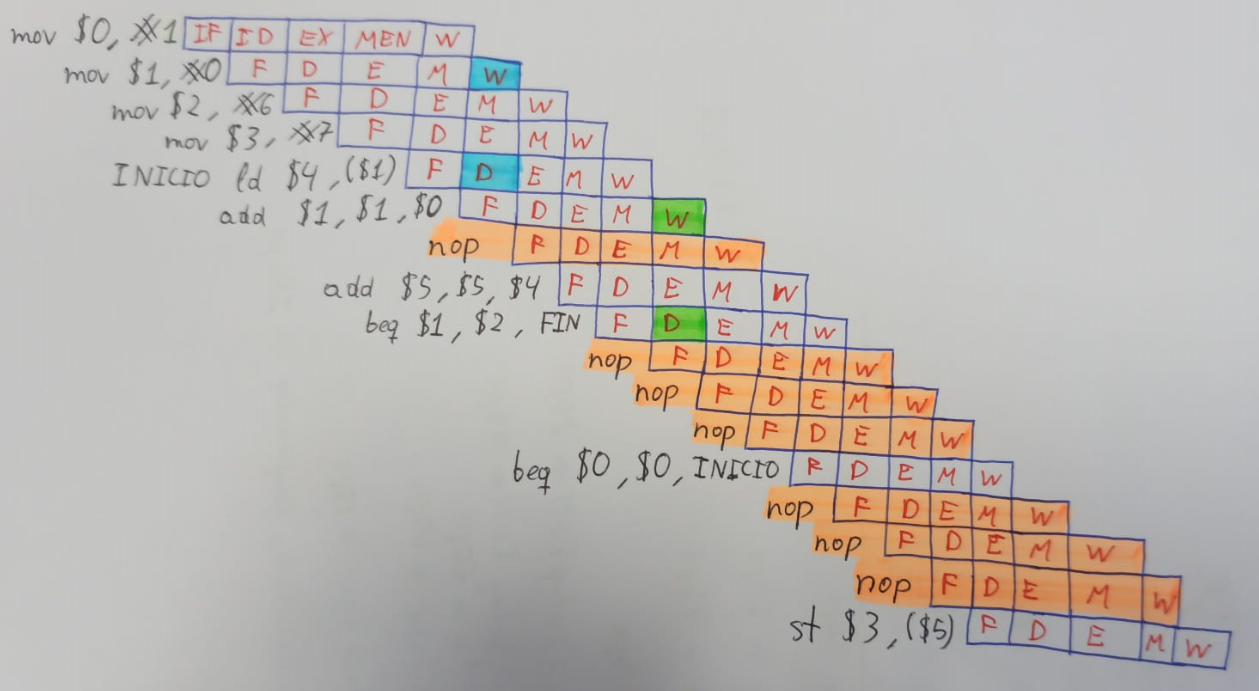 mov $0, #1 IF ID EX MEN W
mov $1, #0 F D E M W
mov $2, #6 F D E M W
mov $3, #7 F D E M W
INICIO ld $4, ($1) F D E M W
add $1, $1, $0 F D E M W
nop F D E M W
add $5, $5, $4 F D E M W
beq $1, $2, FIN F D E M W
nop F D E M W
nop F D E M W
nop F D E M W
beq $0, $0, INICIO F D E M W
nop F D E M W
nop F D E M W
nop F D E M W
st $3, ($5) F D E M W